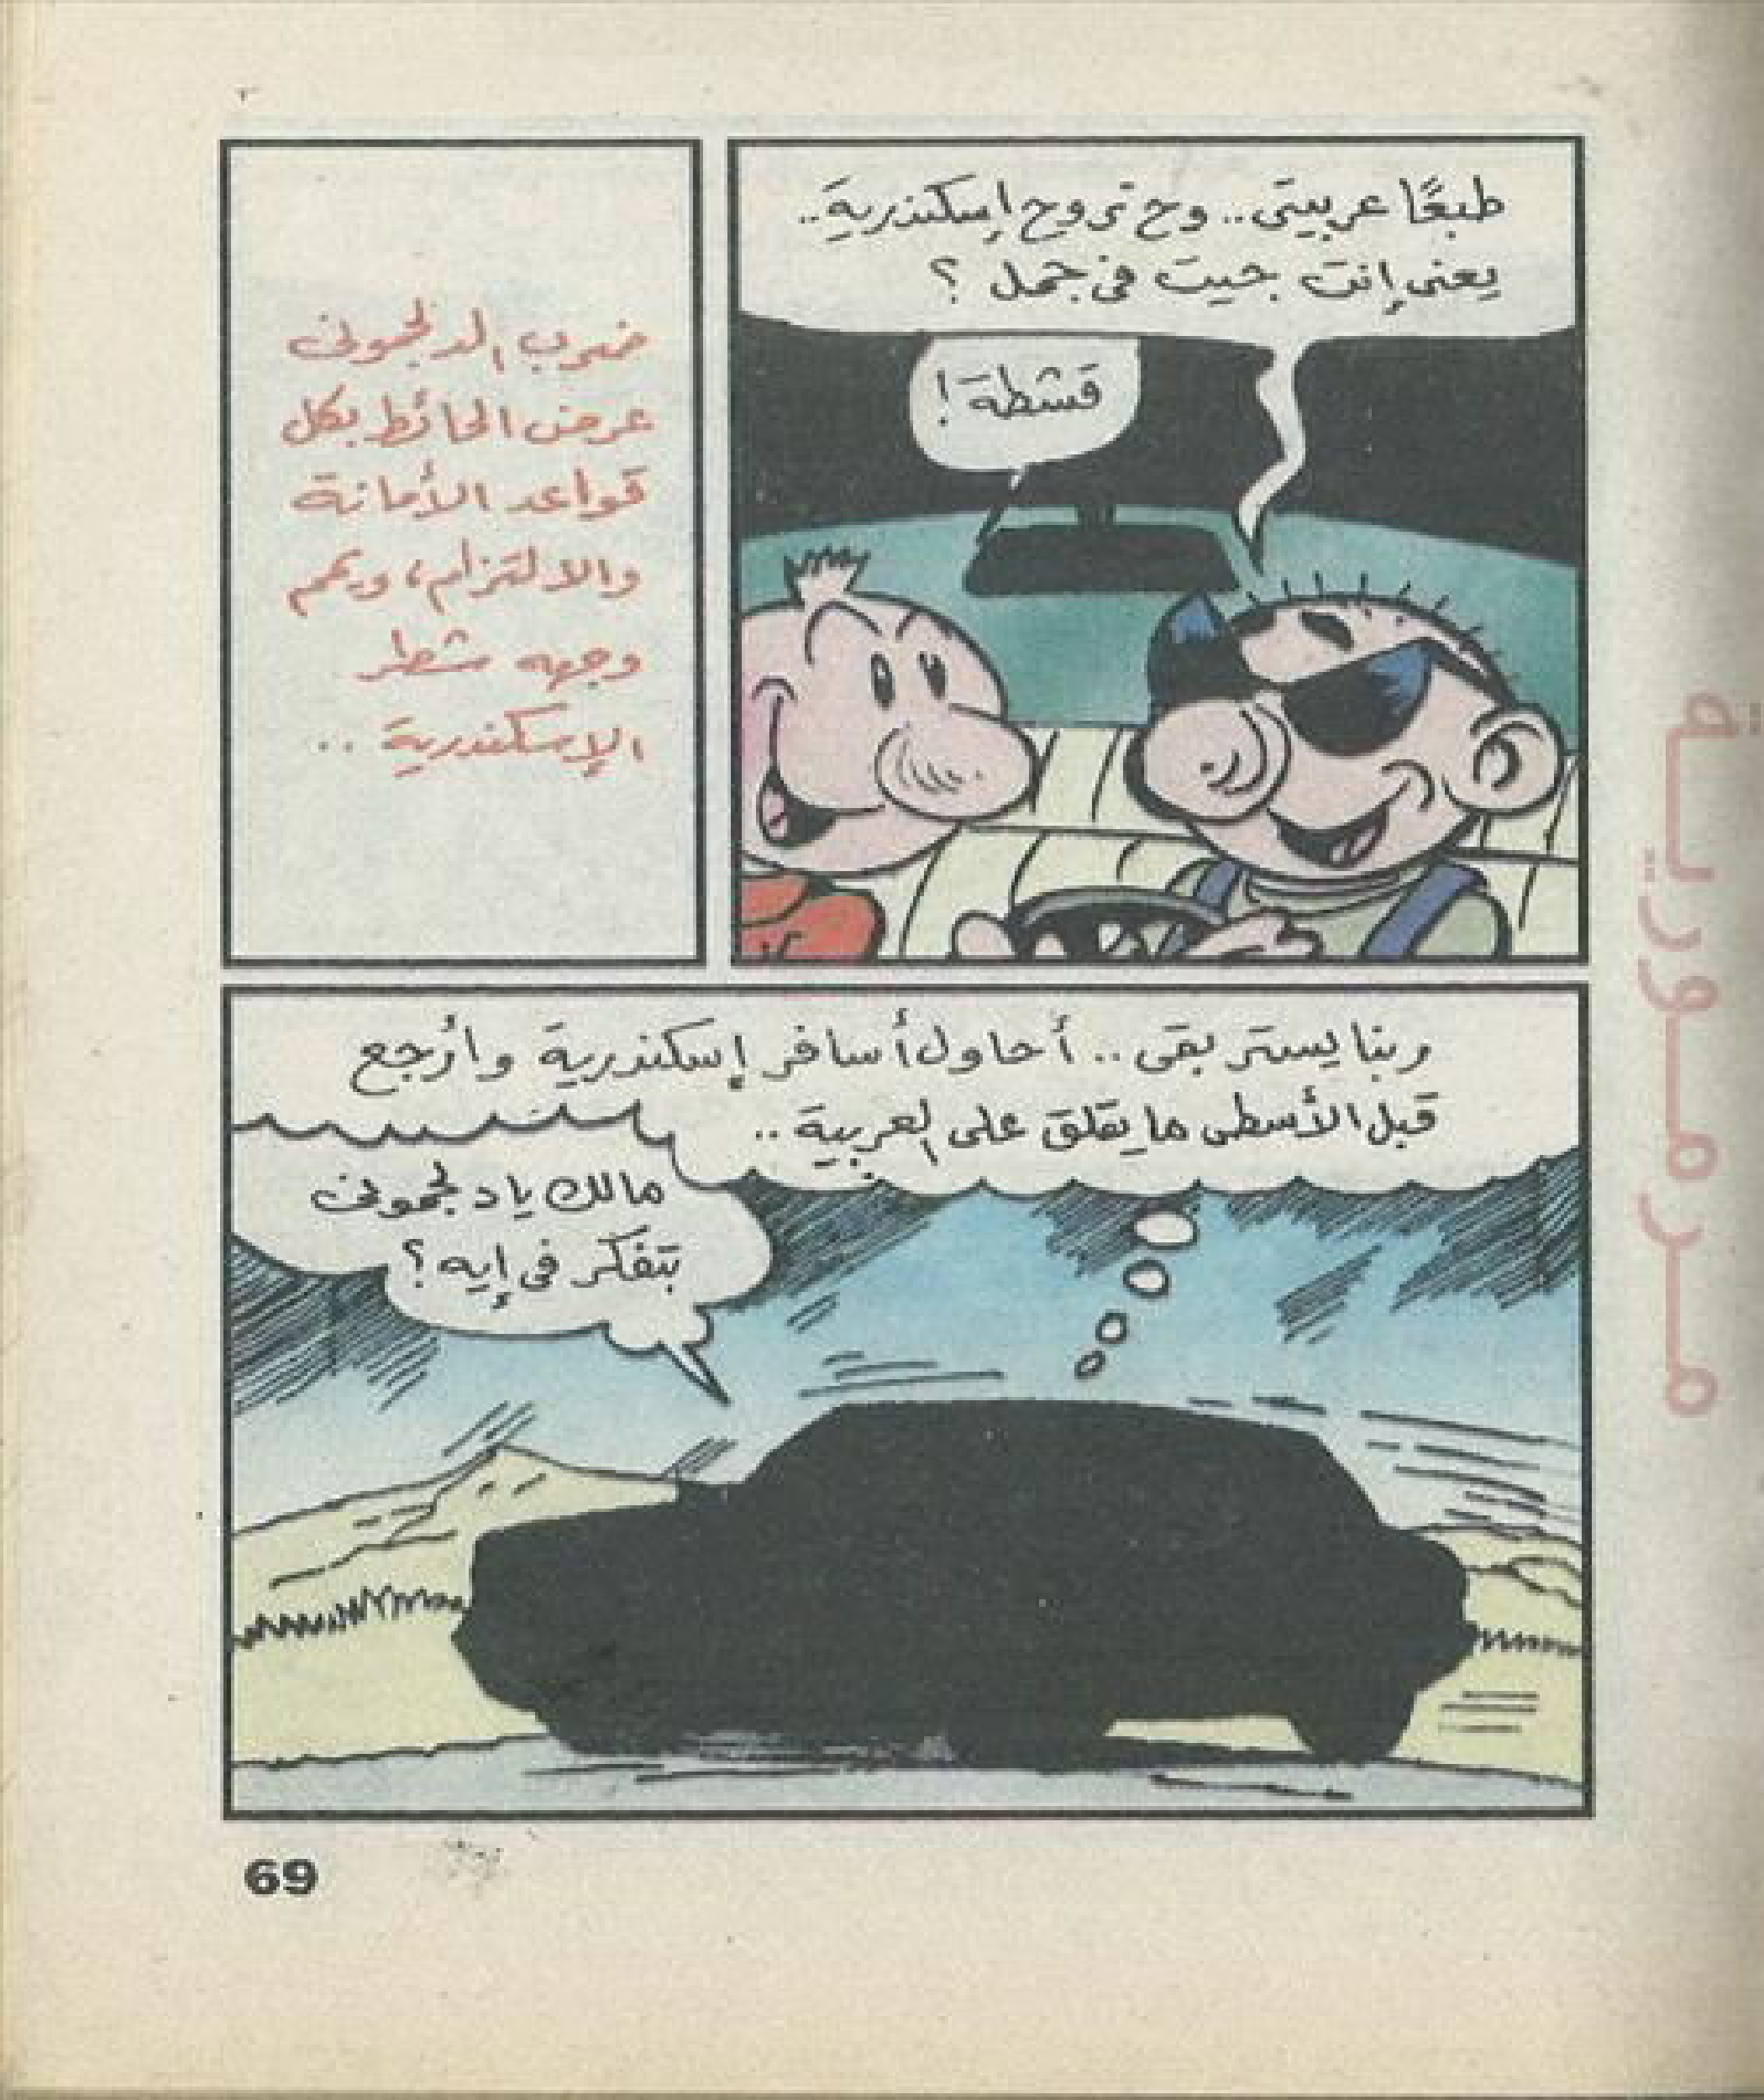 طبعًا عربيتى.. وح تروح إسكندرية..
يعنى إنت جيت فى جمل ؟
قشطة !
ضرب الدلجمونى
عرض الحائط بكل
قواعد الأمانة
والالتزام، ويمم
وجهه شطر
الإسكندرية ..
ربنا يستر بقى .. أحاول أسافر إسكندرية وأرجع
قبل الأسطى ما يقلق على العربية ..
مالك يا دلجمونى
بتفكر فى إيه ؟
69